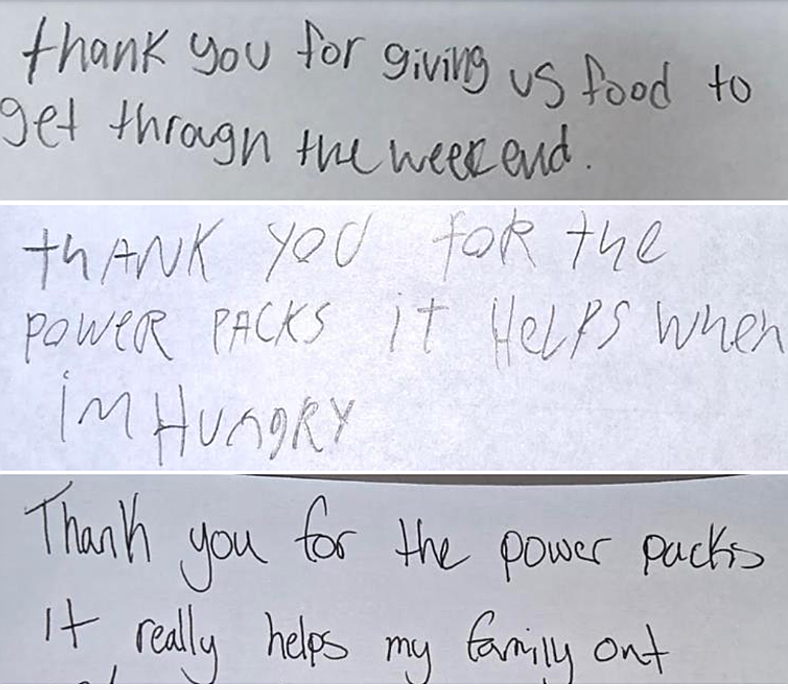 thank you for giving us food to
get throagh the weekend.
thANK YOU foR the
POWER PACKS it HeLPS when
iM HUngRY
Thank you for the power packs
It really helps my family out